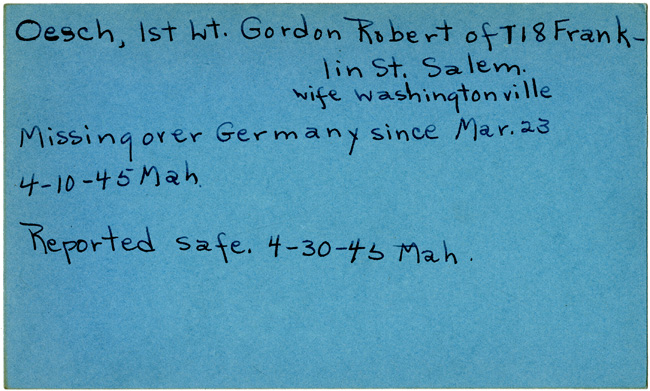 Oesch, 1st Lt. Gordon Robert of T18 Frank-
lin St. Salem.
wife Washingtonville
Missing over Germany since Mar. 23
4-10-45 Mah.
Reported safe. 4-30-45 Mah.